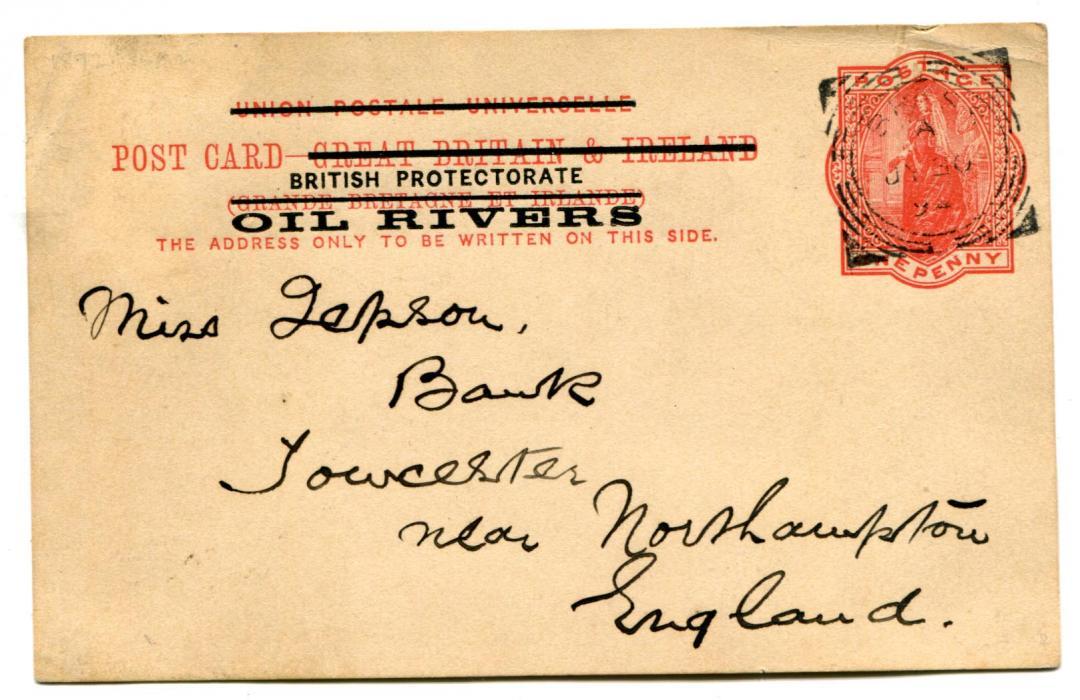 UNION POSTALE UNIVERSELLE
POST CARD—GREAT BRITAIN & IRELAND
BRITISH PROTECTORATE
(GRANDE BRETAGNE ET IRLANDE)
OIL RIVERS
THE ADDRESS ONLY TO BE WRITTEN ON THIS SIDE.
POSTAGE
ONE PENNY
A
94
Miss Jepson,
Bank
Towcester
near Northampton
England.